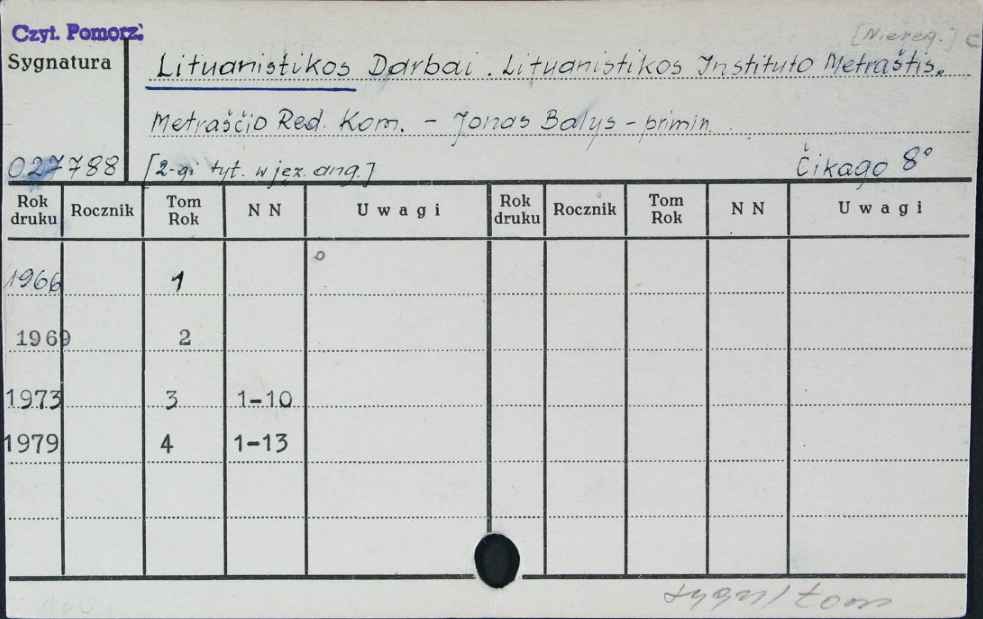 Czyt. Pomorz.
[Niereg.] C
Sygnatura
Lituanistikos Darbai. Lituanistikos Instituto Metraštis.
Metraščio Red. Kom. – Jonas Balys – primin.
027788 [2-gi tyt. w jęz. ang.] Čikago 8°
Rok druku Rocznik Tom Rok N N Uwagi Rok druku Rocznik Tom Rok N N Uwagi
1966 1
1969 2
1973 3 1-10
1979 4 1-13
sygn/tom